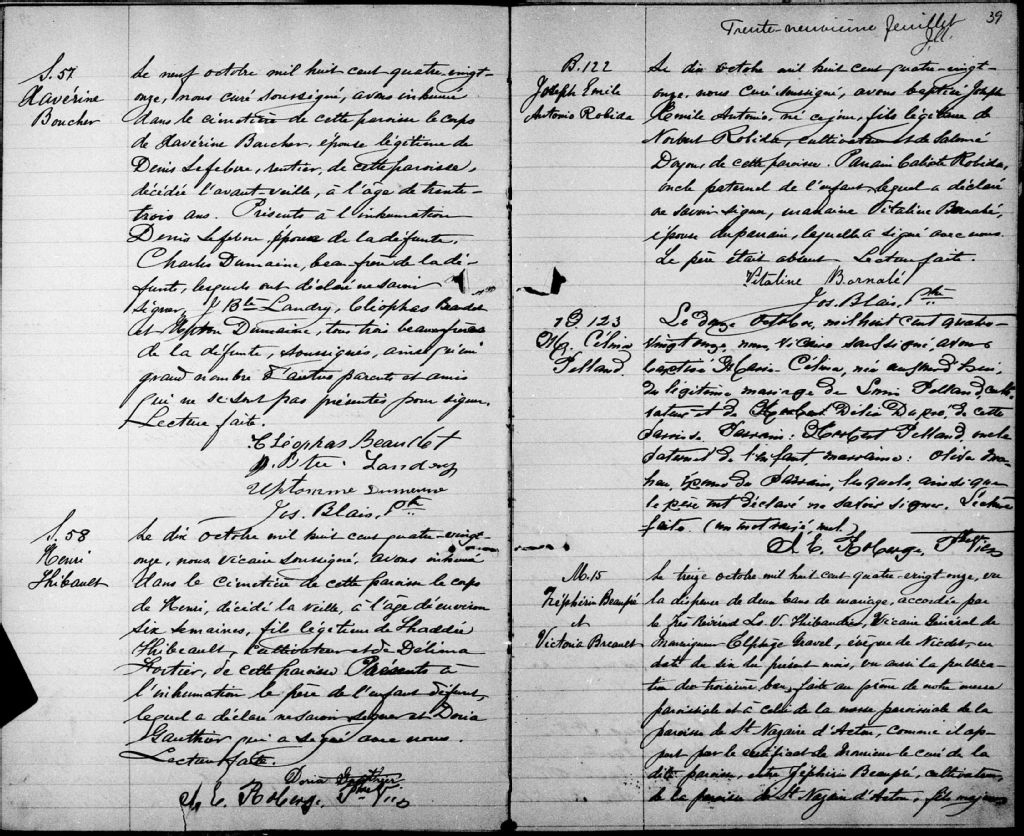 S. 57
Xavérine
Boucher
Le neuf octobre mil huit cent quatre-vingt-
onze, nous curé soussigné, avons inhumé
dans le cimetière de cette paroisse le corps
de Xavérine Boucher, épouse légitime de
Denis Lefebvre, rentier, de cette paroisse,
décédée l'avant-veille, à l'âge de trente-
trois ans. Présents à l'inhumation
Denis Lefebvre, époux de la défunte,
Charles Dumaine, beau-frère de la dé-
funte, lesquels ont déclaré ne savoir
signer, J. Bte Landry, Cléophas Beaudet
et Dumaine, tous trois beaux-frères
de la défunte, soussignés, ainsi qu'un
grand nombre d'autres parents et amis
qui ne se sont pas présentés pour signer.
Lecture faite.
Cléophas Beaudet
Landry
Jos. Blais, Ptre
S. 58
Henri
Thibault
Le dix octobre mil huit cent quatre-vingt-
onze, nous, vicaire soussigné, avons inhumé
dans le cimetière de cette paroisse le corps
de Henri, décédé la veille, à l'âge d'environ
six semaines, fils légitime de Thaddée
Thibeault, cultivateur et de Délima
Fortier, de cette paroisse. Présents à
l'inhumation le père de l'enfant défunt,
lequel a déclaré ne savoir signer et Doria
Gauthier qui a signé avec nous.
Lecture faite.
Doria Gauthier
A. E. Roberge, Ptre Vic
39
Trente-neuvième feuillet
B. 122
Joseph Emile
Antonio Robida
Le dix octobre mil huit cent quatre-vingt-
onze, nous Curé soussigné, avons baptisé Joseph
Emile Antonio, né ce jour, fils légitime de
Norbert Robida, cultivateur et de Salomé
Doyon, de cette paroisse. Parrain Calixte Robida,
oncle paternel de l'enfant lequel a déclaré
ne savoir signer, marraine Vitaline Bernabé,
épouse du parrain, laquelle a signé avec nous.
Le père était absent. Lecture faite.
Vitaline Bornabé
Jos. Blais, Ptre
B. 123
M. Célina
Pelland
Le douze octobre, mil huit cent quatre-
vingt onze, nous, Vicaire soussigné, avons
baptisé Marie Célina, née aujourd'hui,
du légitime mariage de Louis Pelland, culti-
vateur et de Délia Dupré, de cette
paroisse. Parrain: Herbert Pelland, oncle
paternel de l'enfant, marraine: Olive
épouse du Parrain, lesquels, ainsi que
le père ont déclaré ne savoir signer. Lecture
faite. (un mot rayé nul)
A. E. Roberge, Ptre Vic
M. 15
Zéphirin Beaupré
et
Victoria Breault
Le treize octobre mil huit cent quatre-vingt onze, vu
la dispense de deux bans de mariage, accordée par
le Très Révérend Ls. V. Thibaudier, Vicaire Général de
Monseigneur Elphège Gravel, évêque de Nicolet, en
date du six du présent mois, vu aussi la publica-
tion du troisième ban, faite au prône de notre messe
paroissiale et à celui de la messe paroissiale de la
paroisse de St Nazaire d'Acton, comme il ap-
pert par le certificat de Monsieur le curé de la
dite paroisse, entre Zéphirin Beaupré, cultivateur,
de la paroisse de St Nazaire d'Acton, fils majeur